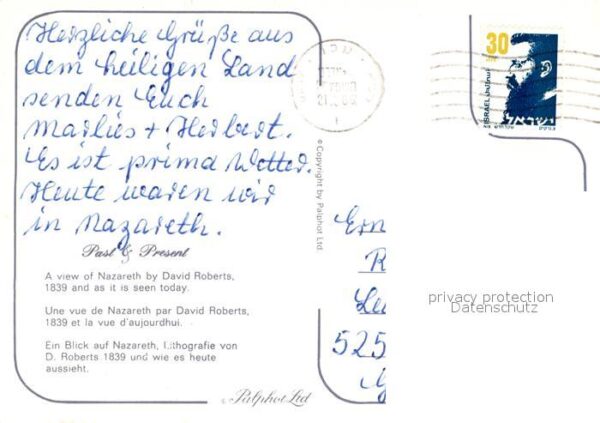 Herzliche Grüße aus
dem heiligen Land
senden Euch
Marlies + Herbert.
Es ist prima Wetter.
Heute waren wir
in Nazareth.
Past & Present
A view of Nazareth by David Roberts,
1839 and as it is seen today.
Une vue de Nazareth par David Roberts,
1839 et la vue d'aujourdhui.
Ein Blick auf Nazareth, Lithografie von
D. Roberts 1839 und wie es heute
aussieht.
Palphot Ltd
© Copyright by Palphot Ltd.
30
ISRAEL
ישראל
Ern
R
525
privacy protection
Datenschutz